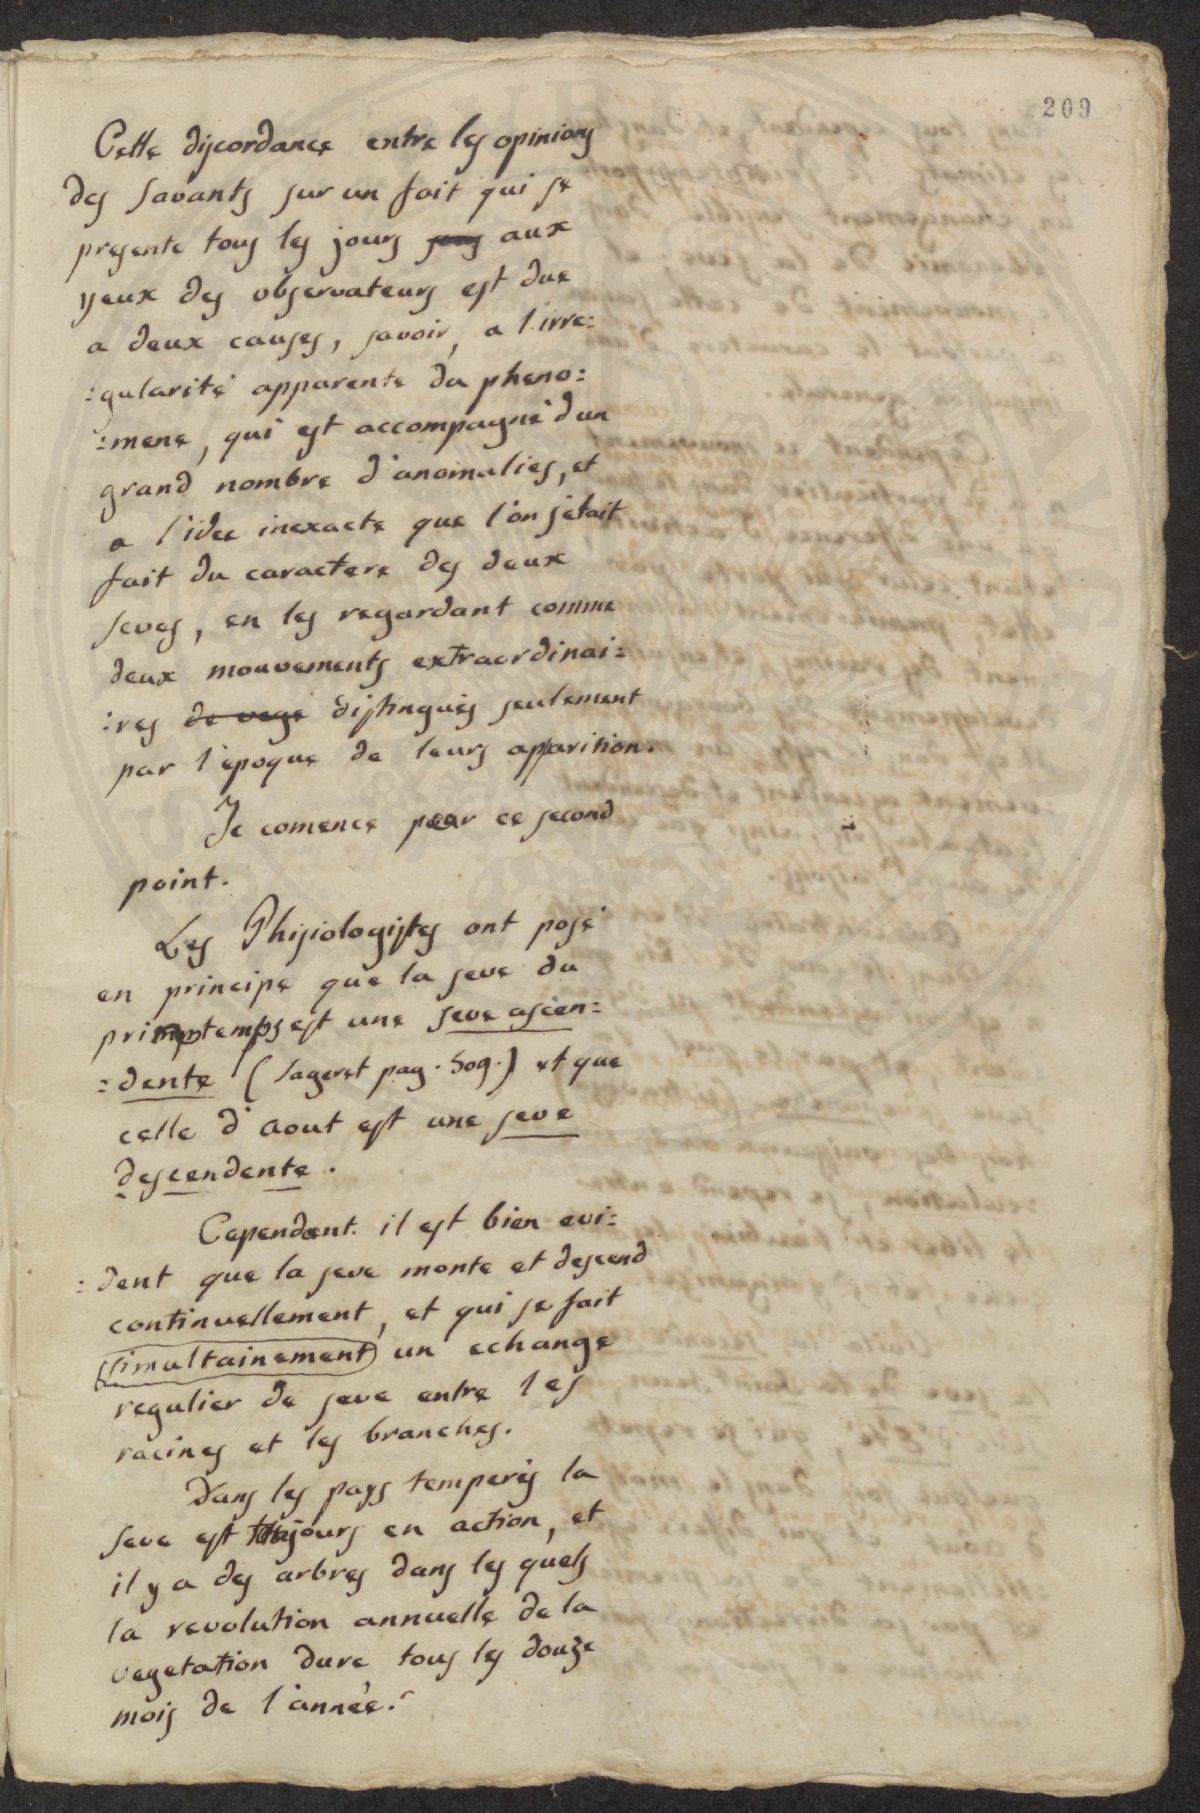 209
Cette discordance entre les opinions
des savants sur un fait qui se
presente tous les jours sous aux
yeux des observateurs est due
a deux causes, savoir, a l'irre=
=gularité apparente du pheno=
=mene, qui est accompagné d'un
grand nombre d'anomalies, et
a l'idee inexacte que l'on s'etait
fait du caractere des deux
seves, en les regardant comme
deux mouvements extraordinai=
=res de vege distingués seulement
par l'époque de leurs apparition.
Je comence par ce second
point.
Les Phisiologistes ont posé
en principe que la seve du
primptemps est une seve ascen=
=dente (Sageret pag. 509.) et que
celle d'aout est une seve
descendente.
Cependant il est bien evi=
=dent que la seve monte et descend
continuellement, et qui se fait
(simultainement) un echange
regulier de seve entre les
racines et les branches.
Dans les pays temperés la
seve est toujours en action, et
il y a des arbres dans les quels
la revolution annuelle de la
vegetation dure tous les douze
mois de l'année.